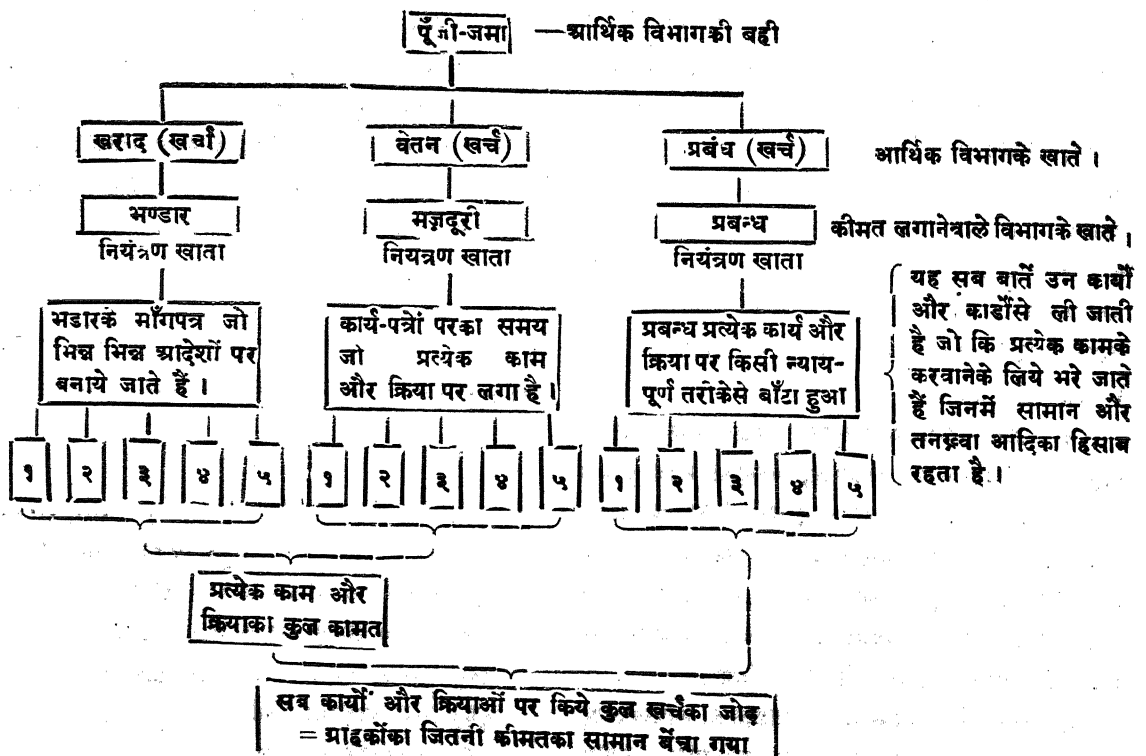 पूँजी-जमा —आर्थिक विभागकी बही
खराद (खर्चा) वेतन (खर्च) प्रबंध (खर्च) आर्थिक विभागके खाते ।
भण्डार मज़दूरी प्रबन्ध कीमत लगानेवाले विभागके खाते ।
नियंत्रण खाता नियत्रण खाता नियंत्रण खाता
भडारके माँगपत्र जो
भिन्न भिन्न आदेशों पर
बनाये जाते हैं ।
कार्य-पत्रों परका समय
जो प्रत्येक काम
और क्रिया पर लगा है ।
प्रबन्ध प्रत्येक कार्य और
क्रिया पर किसी न्याय-
पूर्ण तरीकेसे बाँटा हुआ
यह सब बातें उन कार्यों
और कार्डोंसे ली जाती
है जो कि प्रत्येक कामके
करवानेके लिये भरे जाते
हैं जिनमें सामान और
तनख़्वा आदिका हिसाब
रहता है ।
१ २ ३ ४ ५ १ २ ३ ४ ५ १ २ ३ ४ ५
प्रत्येक काम और
क्रियाका कुल कामत
सब कार्यों और क्रियाओं पर किये कुल खर्चका जोड़
= ग्राहकोंका जितनी कीमतका सामान बेंचा गया